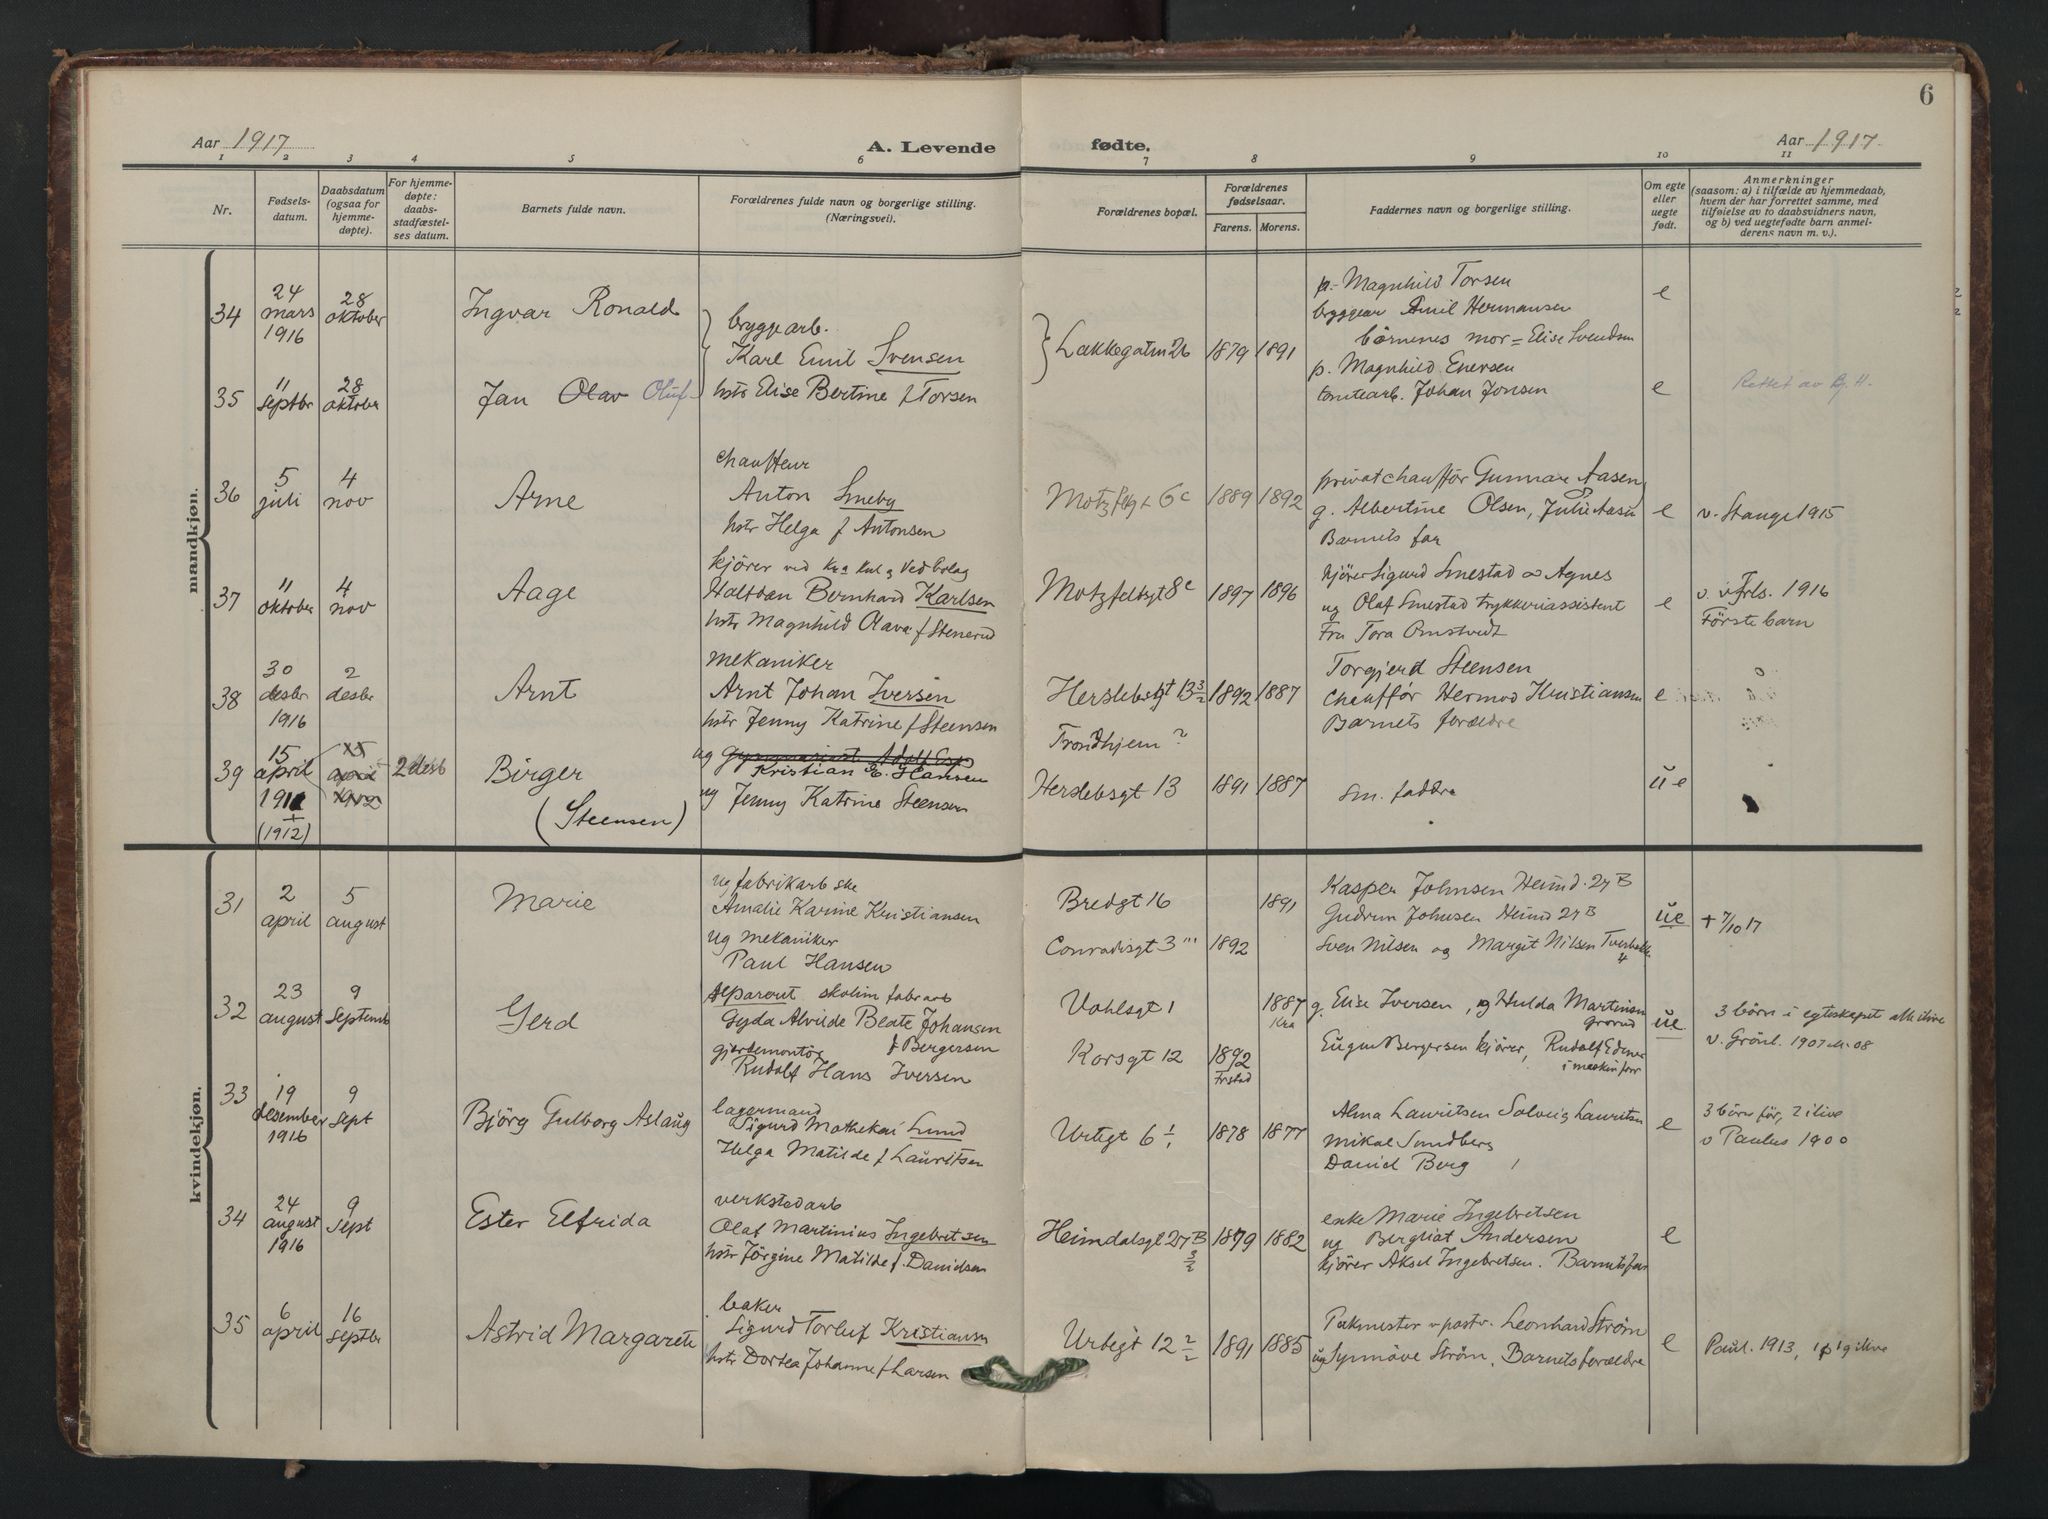 6
Aar 1917
A. Levende
fødte.
Aar 1917.
1 2 3 4 5 6 7 8 9 10 11
Nr.
Fødsels-
datum.
Daabsdatum
(ogsaa for
hjemme-
døpte).
For hjemme-
døpte:
daabs-
stadfæstel-
ses datum.
Barnets fulde navn.
Forældrenes fulde navn og borgerlige stilling.
(Næringsvei).
Forældrenes bopæl.
Forældrenes
fødselsaar.
Farens. Morens.
Faddernes navn og borgerlige stilling.
Om egte
eller
uegte
født.
Anmerkninger
(saasom: a) i tilfælde av hjemmedaab,
hvem der har forrettet samme, med
tilføielse av to daabsvidners navn,
og b) ved uegtefødte barn anmel-
derens navn m. v.).
mandkjøn.
34
24
mars
1916
28
oktober
Ingvar Ronald
bryggearb.
Karl Emil Svensen
Lakkegatm 26
1879 1891
p. Magnhild Torsen
bryggear Emil Hermansen
börnenes mor = Elise Svendsen
e
35
11
septbr
28
oktober
Jan Olav Oluf
hstr Elise Bertine f Torsen
p. Magnhild Enersen
tomtearb. Johan Jonsen
e
Rettet av B. H.
36
5
juli
4
nov
Arne
chauffeur
Anton Smeby
hstr Helga f Antonsen
6c
1889 1892
privatchaufför Gunnar Aasen
g. Albertine Olsen, Julie Aasen
Barnets far
e
v. Stange 1915
37
11
oktober
4
nov
Aage
kjörer ved Kra Kul og Vedbolag
Bernhard Karlsen
hstr Magnhild Olava f Stenerud
Motzfeldtsgt 8c
1897 1896
kjörer Sigurd Smestad og Agnes
ug Olaf Smestad trykkeriassistent
Fru Tora
e
v. vFrls. 1916
Förste barn
38
30
desbr
1916
2
desbr
Arnt
mekaniker
Arnt Johan Iversen
hstr Jenny Katrine f Steensen
Herslebsgt 13 3/2
1892 1887
Torgjerd Steensen
Chauffør Hermod Kristiansen
Barnets forældre
e
39
15
april
1911
(1912)
15
april
1912
2 desb
Birger
(Steensen)
ug gymnasiast Adolf Esp
Kristian E. Hansen
ug Jenny Katrine Steensen
Trondhjem ?
Herslebsgt 13
1891 1887
Sm. faddre
ue
kvindekjøn.
31
2
april
5
august
Marie
ug fabrikarbske
Amalie Karine Kristiansen
ug mekaniker
Paul Hansen
Bredgt 16
Conradisgt 3 '''
1891
1892
Kasper Johnsen Heimd. 27 B
Gudrun Johnsen Heimd 27 B
Sven Nilsen og Margit Nilsen
4
ue
+ 7/10 17
32
23
august
9
Septemb
Gerd
separert skotim fabrarb
Gyda Alvilde Beate Johansen
f Bergersen
gjerdemontör
Rudolf Hans Iversen
Vahlsgt 1
Korsgt 12
1887
Kra
1892
Frstad
g. Elise Iversen, og Hulda Martinsen
Grorud
Eugen Bergersen kjörer, Rudolf
i maskinforr
ue
3 börn i egteskapet alle ilive
v. Grönl. 1907 & 08
33
19
desember
1916
9
Sept
Björg Gulborg Aslaug
lagermand
Sigurd Lund
Helga Matilde f Lauritsen
Urtegt 6 1/1
1878 1877
Alma Lauritsen Solveig Lauritsen
Mikal Sundberg
Daniel Berg
e
3 börn för, 2 ilive
v Paulus 1900
34
24
august
1916
9
Sept
Ester Elfrida
verkstedarb
Olaf Martinius Ingebretsen
hstr Jörgine Matilde f. Danidsen
Heimdalsgt 27 B
3/2
1879 1882
enke Marie Ingebretsen
ug Bergliot Andersen
kjörer Aksel Ingebretsen. Barnets far
e
35
6
april
16
septbr
Astrid Margarete
baker
Sigurd Torluf Kristiansen
hstr Dortea Johanne f Larsen
Urtegt 12 2/2
1891 1885
Pakmester v postv. Leonhard Ström
ug Synnöve Ström, Barnets forældre
e
Paul. 1913, 1 p 1 g ilive